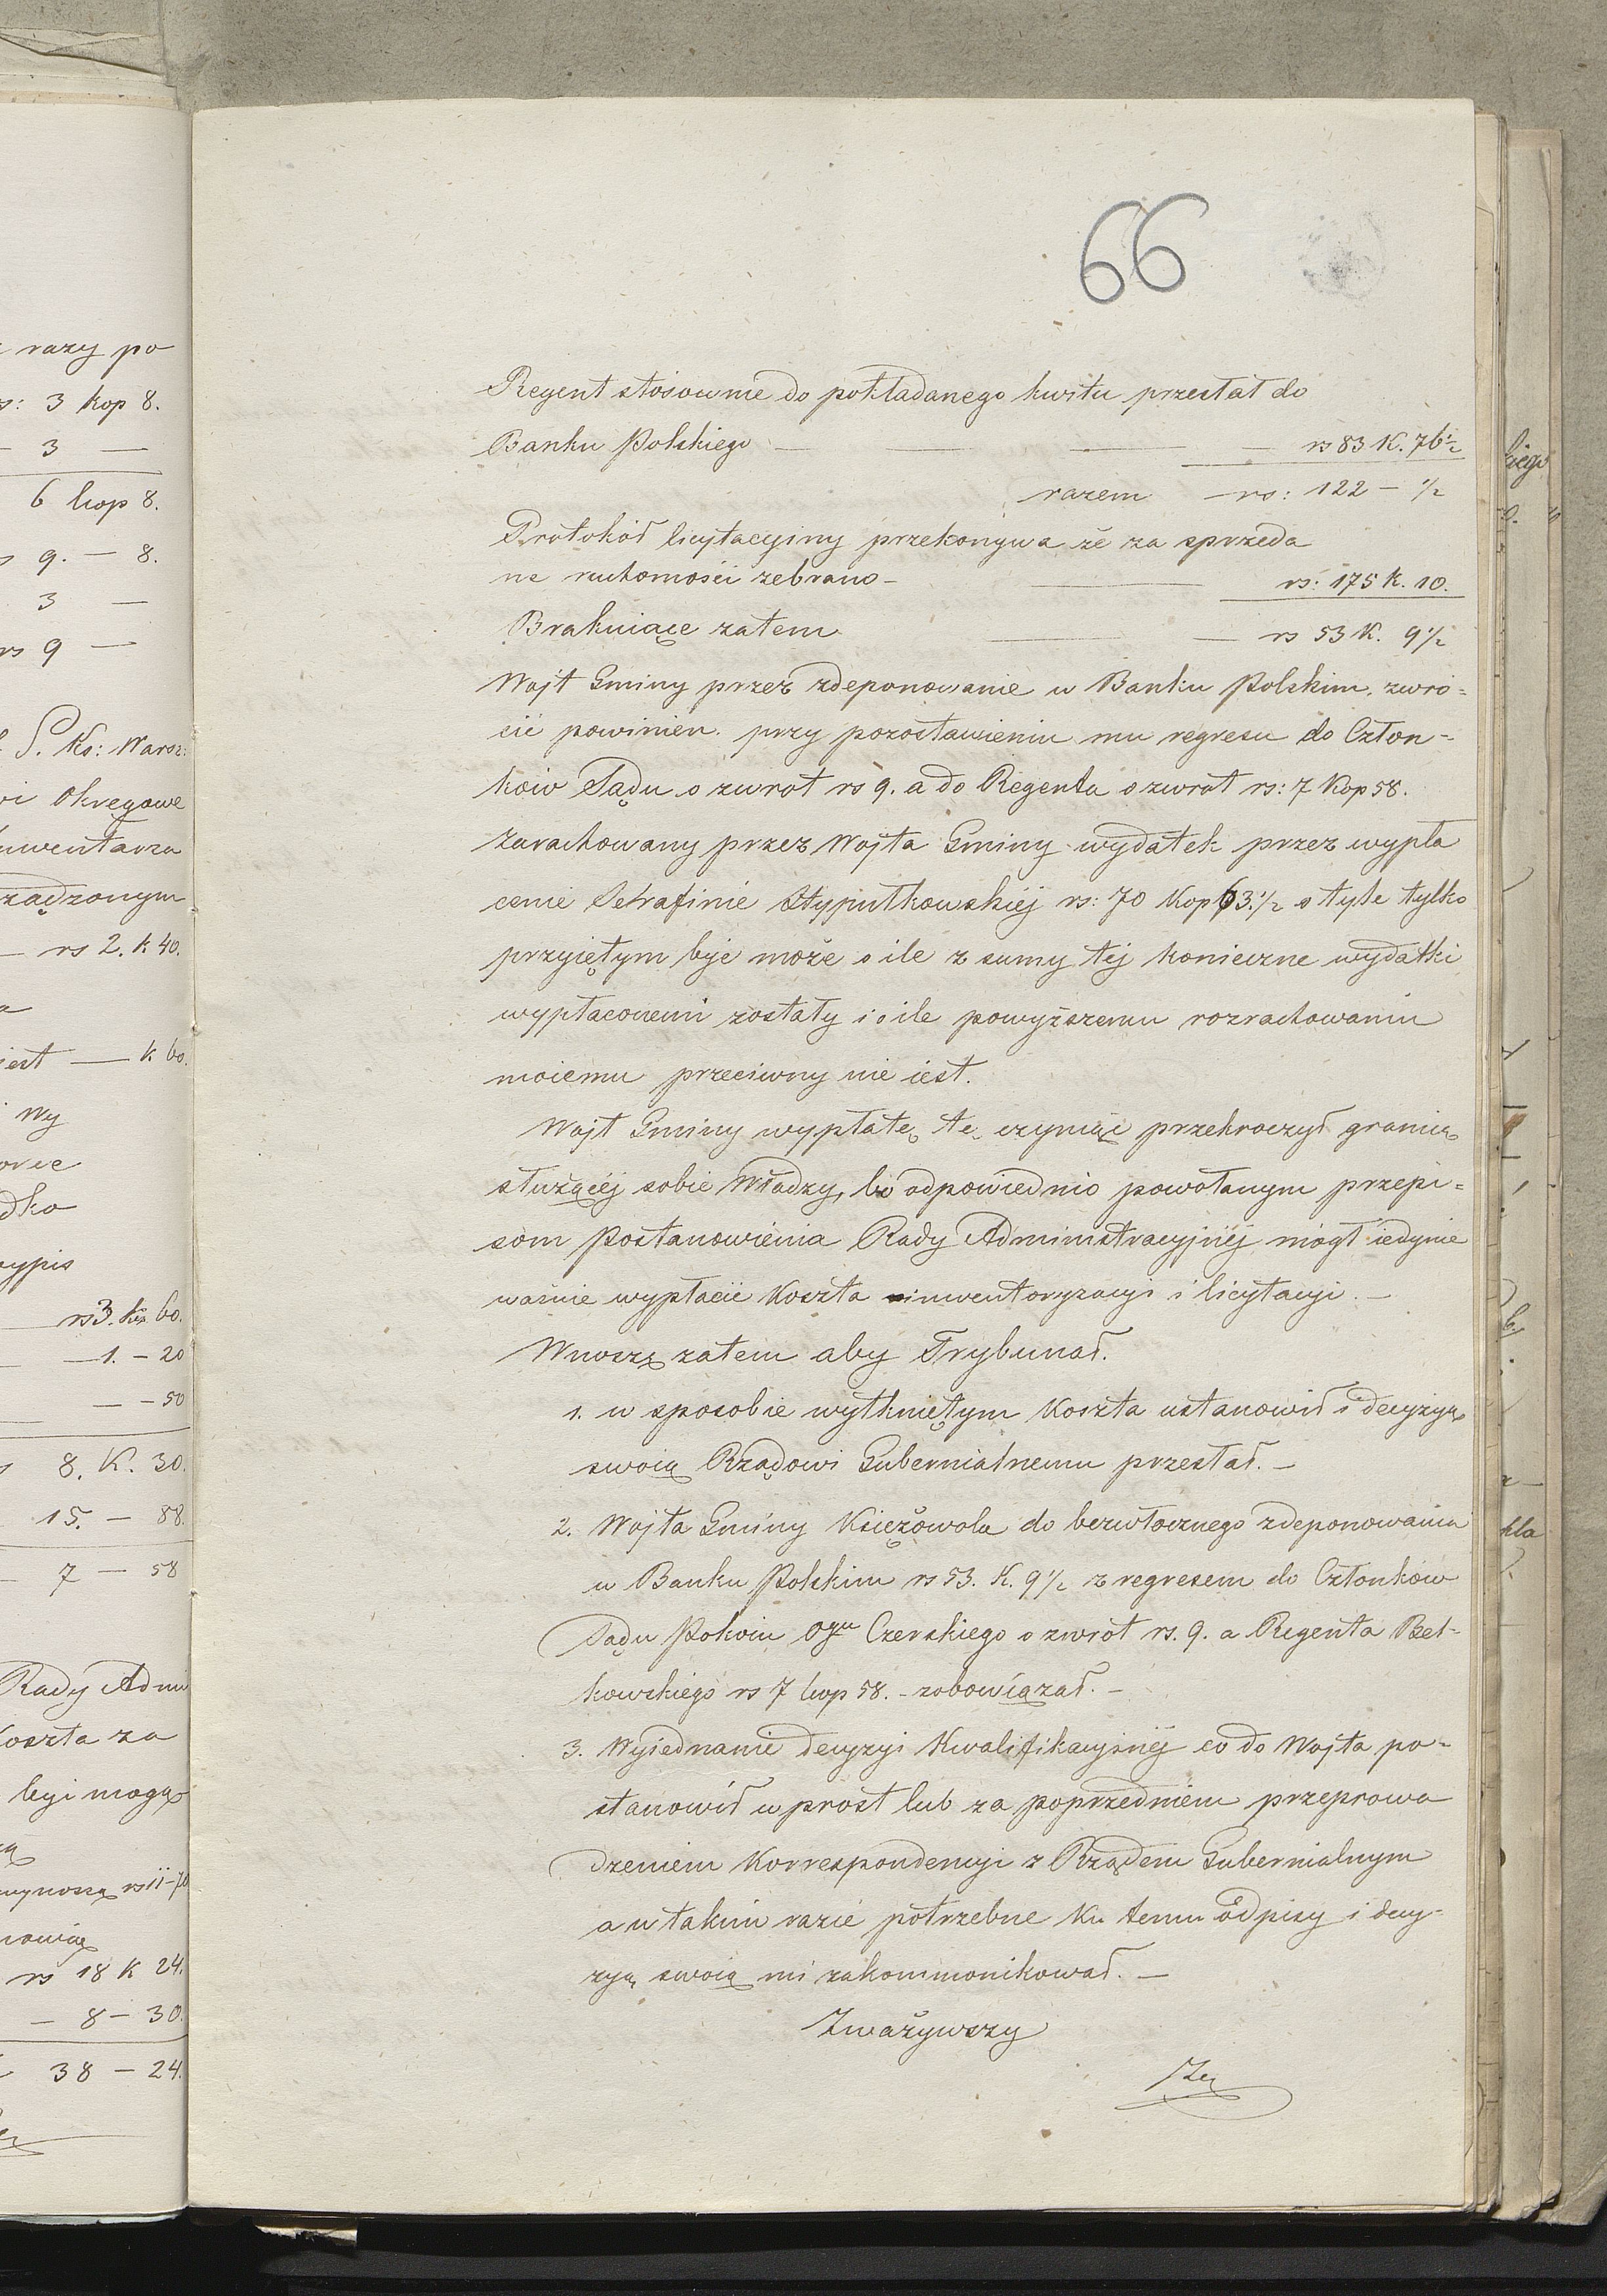 razy po
rs: 3 kop 8.
— 3 —
6 kop 8.
9. — 8.
3 —
rs 9 —
S. Ks: Warsz:
Okręgowe
rs 2. k 40.
jest — k 60.
Wy
wypis
rs 3. ks 60.
— 1. — 20
— — 50
8. K. 30.
15. — 88.
7 — 58
Rady Admi
koszta za
byi mogą
wynoszą rs 11—70
rs 18 K 24.
— 8 — 30.
38 — 24.
66
Regent stósownie do pokładanego kwitu przesłał do
Banku Polskiego — — — — rs 83 K. 76½
razem — rs: 122 — ½
Protokół licytacyjny przekonywa że za sprzeda
ne ruchomości zebrano — — rs: 175 k. 10.
Brakuiące zatem — — rs 53 K. 9½
Wójt Gminy przez zdeponowanie w Banku Polskim, zwró=
cić powinien. przy pozostawieniu mu regresu do Człon=
ków Sądu o zwrot rs 9. a do Regenta o zwrot rs: 7 Kop 58.
Zarachowany przez Wójta Gminy wydatek przez wypła
cenie Serafinie Stypułkowskiéj rs: 70 Kop 63½ o tyle tylko
przyiętym byc może o ile z sumy téj konieczne wydatki
wypłaconemi zostały i o ile powyższemu rozrachowaniu
moiemu przeciwny nie iest.
Wójt Gminy wypłatę tę czyniąc przekroczył granicę
służącéj sobie Władzy, bo odpowiednio powołanym przepi=
som Postanowienia Rady Administracyjnéj mógł iedynie
ważnie wypłacić Koszta inwentoryzacyi i licytacyi. —
Wnoszę zatem aby Trybunał.
1. w sposobie wytkniętym Koszta ustanowił i decyzyą
swoią Rządowi Gubernialnemu przesłał. —
2. Wójta Gminy Księżowola do bezwłocznego zdeponowania
w Banku Polskim rs 53. K. 9½ z regresem do Członków
Sądu Pokoiu Ogu Czerskiego o zwrot rs. 9. a Regenta Beł-
kowskiego rs 7 kop 58. — zobowiązał. —
3. Wyiednanie decyzyi Kwalifikacyjnéj co do Wójta po=
stanowił wprost lub za poprzedniem przeprowa
dzeniem Korrespondencyi z Rządem Gubernialnym
a w takim razie potrzebne ku temu odpisy i decy-
zyą swoią mi zakommonikował. —
Zważywszy
Że